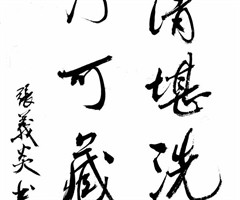 清堪洗
秀可藏
張義炎书